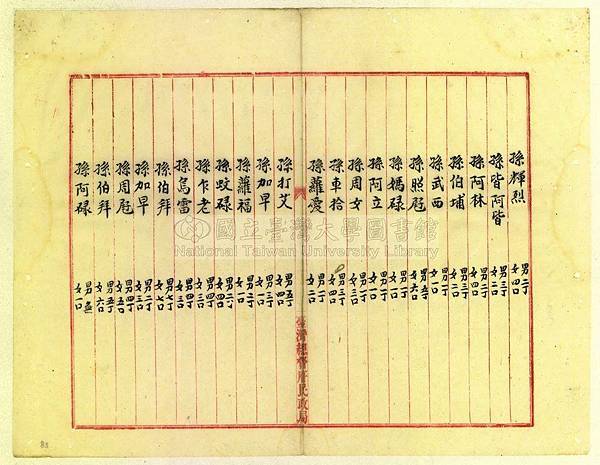 孫輝烈 男二丁 女四口
孫皆阿皆 男三丁 女二口
孫阿林 男二丁 女二口
孫伯埔 男三丁 女二口
孫武西 男一丁 女一口
孫照 男五丁 女六口
孫媽碌 男二丁 女一口
孫阿立 男二丁 女一口
孫周女 男三丁 女二口
孫車拾 男三丁 女四口
孫蘿愛 男一丁 女二口
臺灣總督府民政局
孫打艾 男五丁 女四口
孫加早 男三丁 女一口
孫蘿福 男二丁 女一口
孫蚊碌 男二丁 女四口
孫乍老 男四丁 女四口
孫烏雷 男四丁 女三口
孫伯拜 男七丁 女七口
孫加早 男二丁 女三口
孫周 男四丁 女五口
孫伯拜 男五丁 女六口
孫阿碌 男 女一口
國立臺灣大學圖書館
National Taiwan University Library